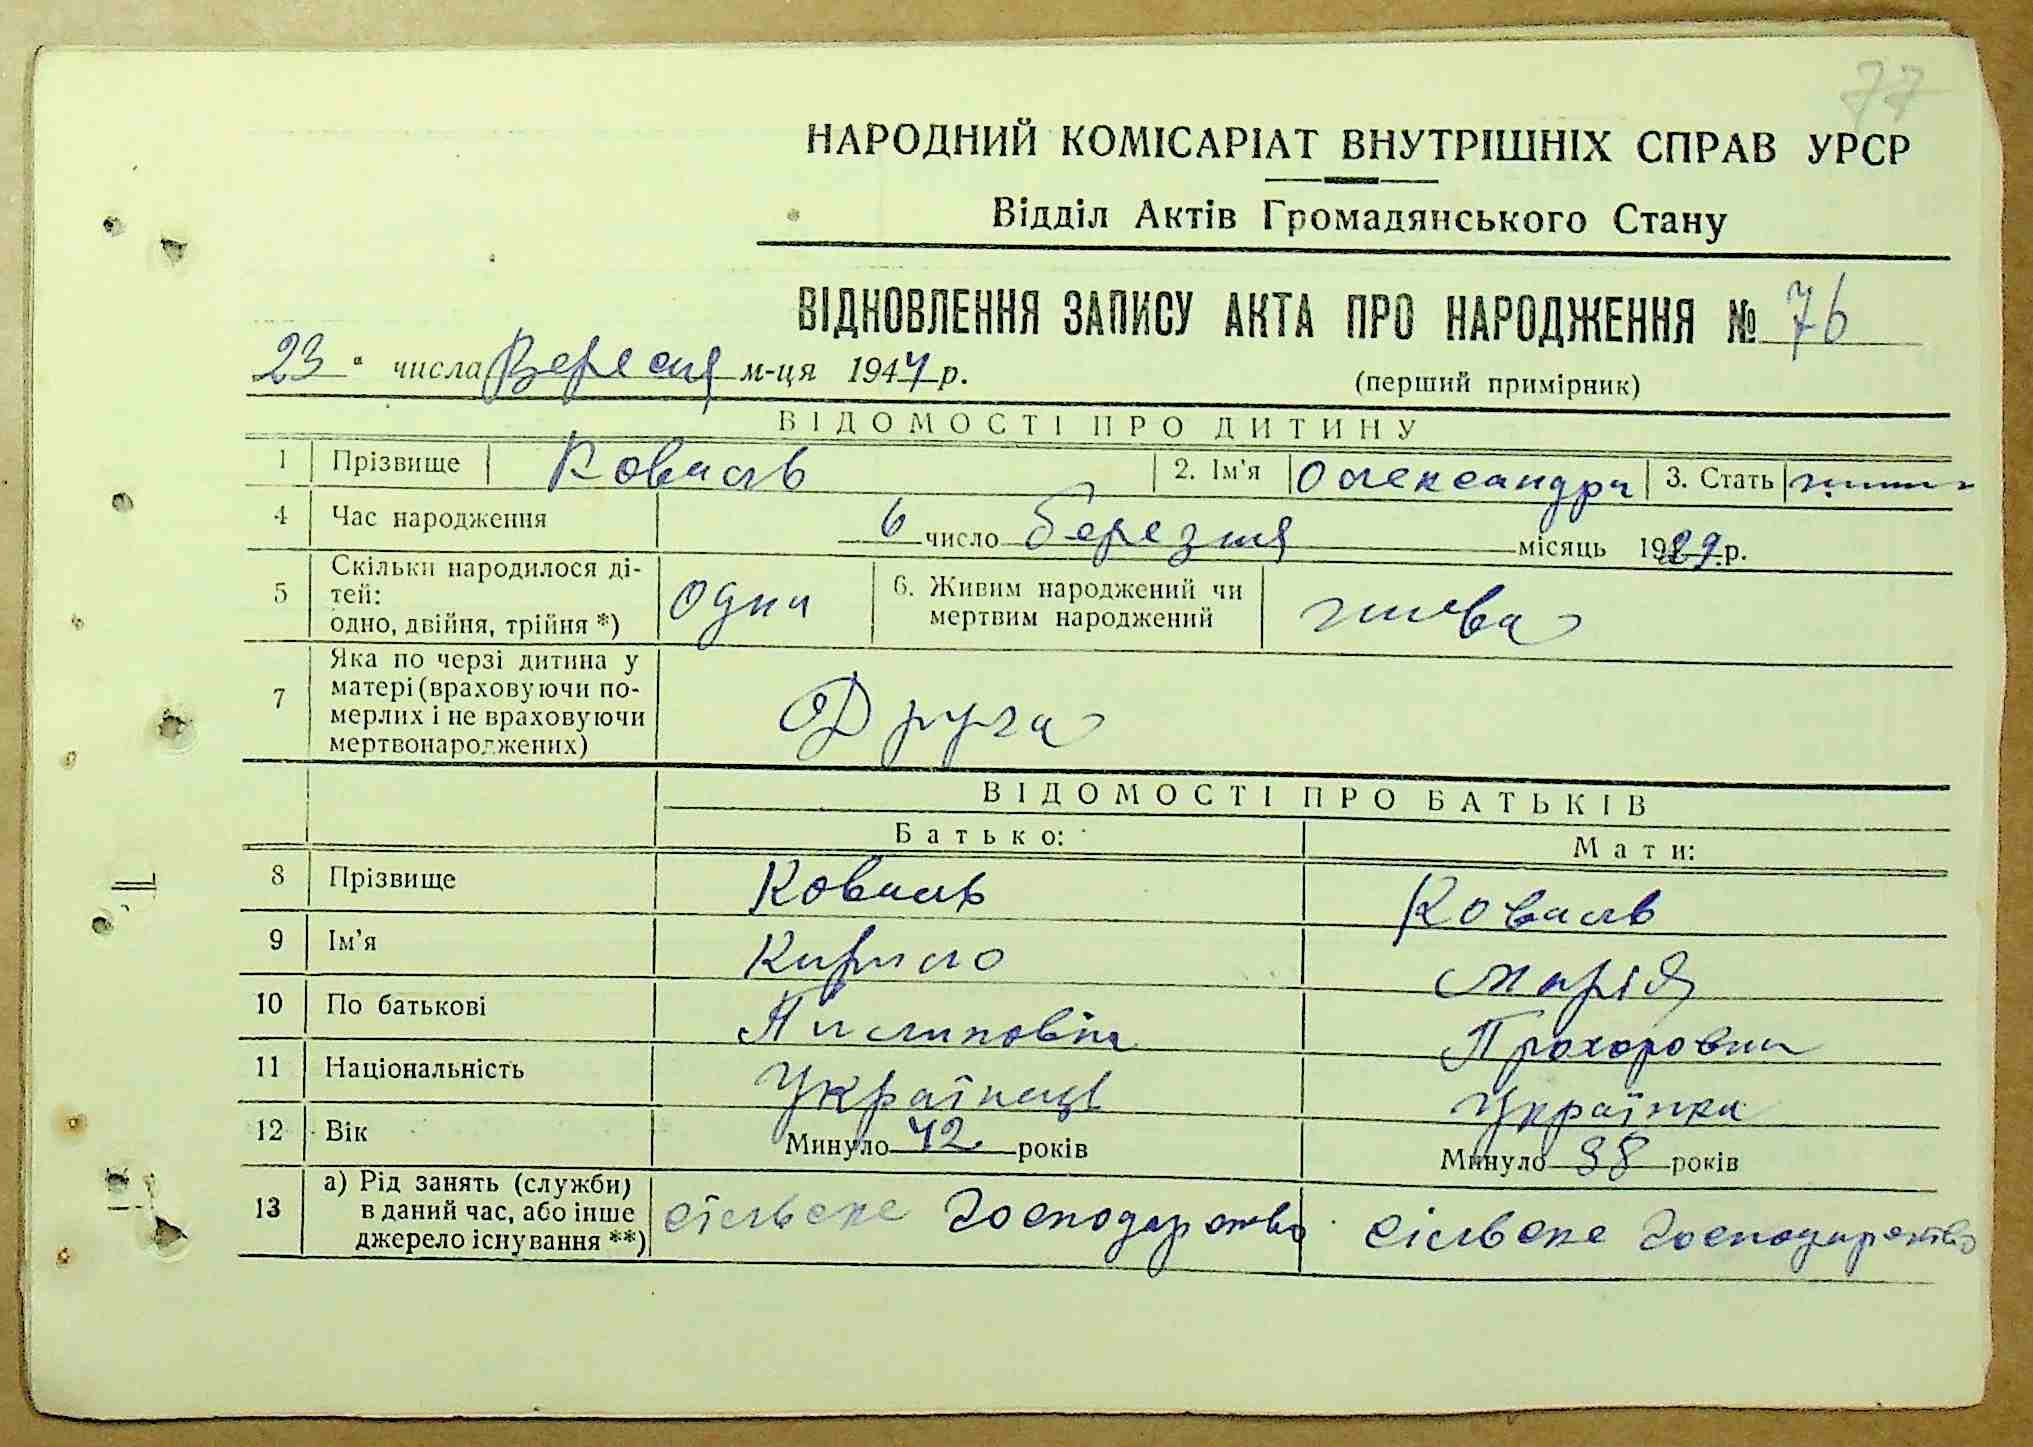 77
НАРОДНИЙ КОМІСАРІАТ ВНУТРІШНІХ СПРАВ УРСР
Відділ Актів Громадянського Стану
ВІДНОВЛЕННЯ ЗАПИСУ АКТА ПРО НАРОДЖЕННЯ № 76
23 " числа Вересня м-ця 1944 р. (перший примірник)
ВІДОМОСТІ ПРО ДИТИНУ
1 Прізвище Коваль 2. Ім'я Олександра 3. Стать
4 Час народження 6 число березня місяць р.
5 Скільки народилося ді-
тей:
одно, двійня, трійня *) одна 6. Живим народжений чи
мертвим народжений жива
7 Яка по черзі дитина у
матері (враховуючи по-
мерлих і не враховуючи
мертвонароджених) Друга
ВІДОМОСТІ ПРО БАТЬКІВ
Батько: Мати:
8 Прізвище Коваль Коваль
9 Ім'я Кирило Марія
10 По батькові Пилипович Прохоровна
11 Національність Українець Українка
12 Вік Минуло 42 років Минуло 38 років
13 а) Рід занять (служби)
в даний час, або інше
джерело існування **) сільске господарство сільске господарство